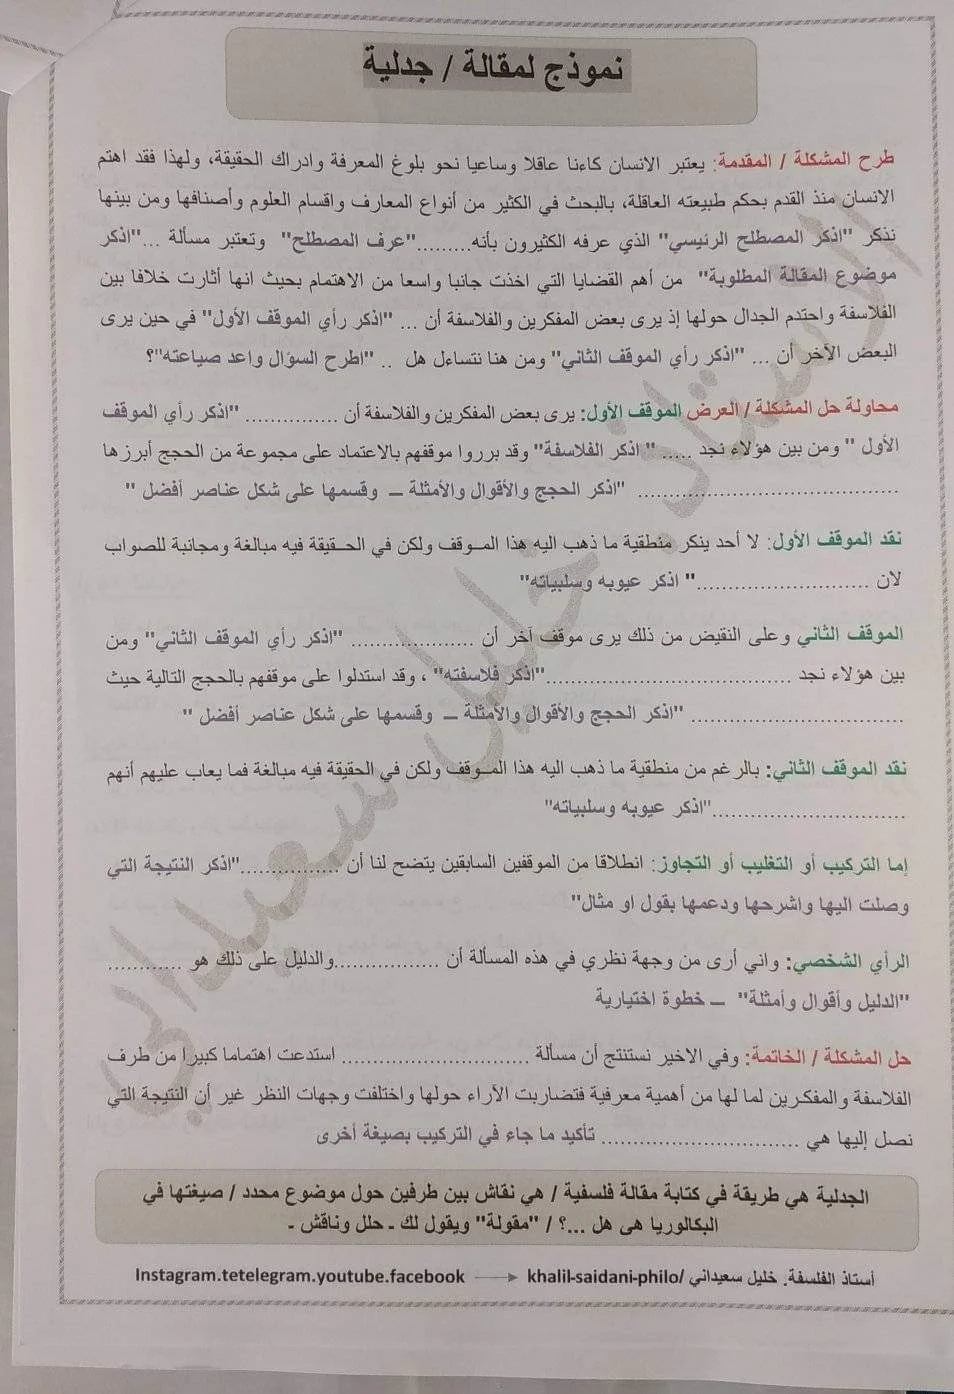 نموذج لمقالة / جدلية
طرح المشكلة / المقدمة: يعتبر الانسان كاءنا عاقلا وساعيا نحو بلوغ المعرفة وادراك الحقيقة، ولهذا فقد اهتم
الانسان منذ القدم بحكم طبيعته العاقلة، بالبحث في الكثير من أنواع المعارف واقسام العلوم وأصنافها ومن بينها
نذكر "اذكر المصطلح الرئيسي" الذي عرفه الكثيرون بأنه.........."عرف المصطلح" وتعتبر مسألة ..."اذكر
موضوع المقالة المطلوبة" من أهم القضايا التي اخذت جانبا واسعا من الاهتمام بحيث انها أثارت خلافا بين
الفلاسفة واحتدم الجدال حولها إذ يرى بعض المفكرين والفلاسفة أن ... "اذكر رأي الموقف الأول" في حين يرى
البعض الآخر أن ... "اذكر رأي الموقف الثاني" ومن هنا نتساءل هل .. "اطرح السؤال واعد صياعته"؟
محاولة حل المشكلة / العرض الموقف الأول: يرى بعض المفكرين والفلاسفة أن ............... "اذكر رأي الموقف
الأول " ومن بين هؤلاء نجد ..... " اذكر الفلاسفة" وقد برروا موقفهم بالاعتماد على مجموعة من الحجج أبرزها
.......................................... "اذكر الحجج والأقوال والأمثلة – وقسمها على شكل عناصر أفضل "
نقد الموقف الأول: لا أحد ينكر منطقية ما ذهب اليه هذا المـوقف ولكن في الحـقيقة فيه مبالغة ومجانبة للصواب
لان ................................" اذكر عيوبه وسلبياته"
الموقف الثاني وعلى النقيض من ذلك يرى موقف آخر أن .................... "اذكر رأي الموقف الثاني" ومن
بين هؤلاء نجد ........................................"اذكر فلاسفته" ، وقد استدلوا على موقفهم بالحجج التالية حيث
.................................. "اذكر الحجج والأقوال والأمثلة – وقسمها على شكل عناصر أفضل "
نقد الموقف الثاني: بالرغم من منطقية ما ذهب اليه هذا المـوقف ولكن في الحقيقة فيه مبالغة فما يعاب عليهم أنهم
..............................."اذكر عيوبه وسلبياته"
إما التركيب أو التغليب أو التجاوز: انطلاقا من الموقفين السابقين يتضح لنا أن ................"اذكر النتيجة التي
وصلت اليها واشرحها ودعمها بقول او مثال"
الرأي الشخصي: واني أرى من وجهة نظري في هذه المسألة أن .................والدليل على ذلك هو ............
"الدليل وأقوال وأمثلة" – خطوة اختيارية
حل المشكلة / الخاتمة: وفي الاخير نستنتج أن مسألة .............................. استدعت اهتماما كبيرا من طرف
الفلاسفة والمفكرين لما لها من أهمية معرفية فتضاربت الآراء حولها واختلفت وجهات النظر غير أن النتيجة التي
نصل إليها هي ............................... تأكيد ما جاء في التركيب بصيغة أخرى
الجدلية هي طريقة في كتابة مقالة فلسفية / هي نقاش بين طرفين حول موضوع محدد / صيغتها في
البكالوريا هي هل ...؟ / "مقولة" ويقول لك - حلل وناقش -
أستاذ الفلسفة. خليل سعيداني /khalil-saidani-philo → Instagram.tetelegram.youtube.facebook
الأستاذ: خليل سعيداني